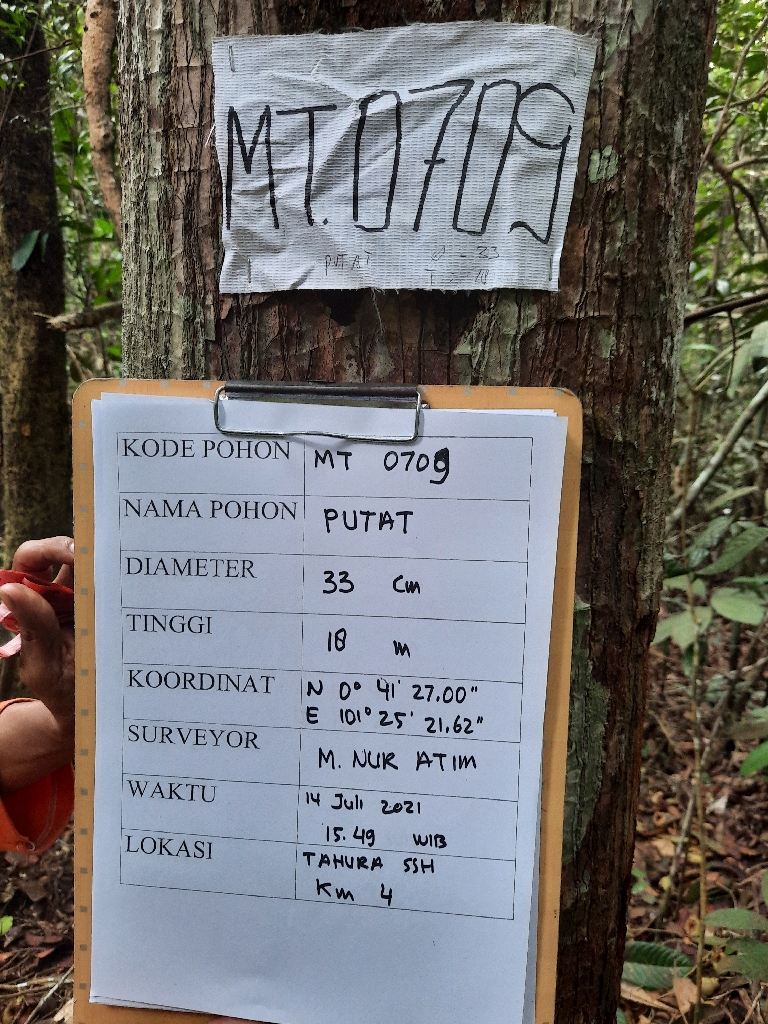 MT.0709
PUTAT
KODE POHON MT 0709
NAMA POHON PUTAT
DIAMETER 33 Cm
TINGGI 18 m
KOORDINAT N 0° 41' 27.00"
E 101° 25' 21.62"
SURVEYOR M. NUR ATIM
WAKTU 14 Juli 2021
15.49 WIB
LOKASI TAHURA SSH
Km 4